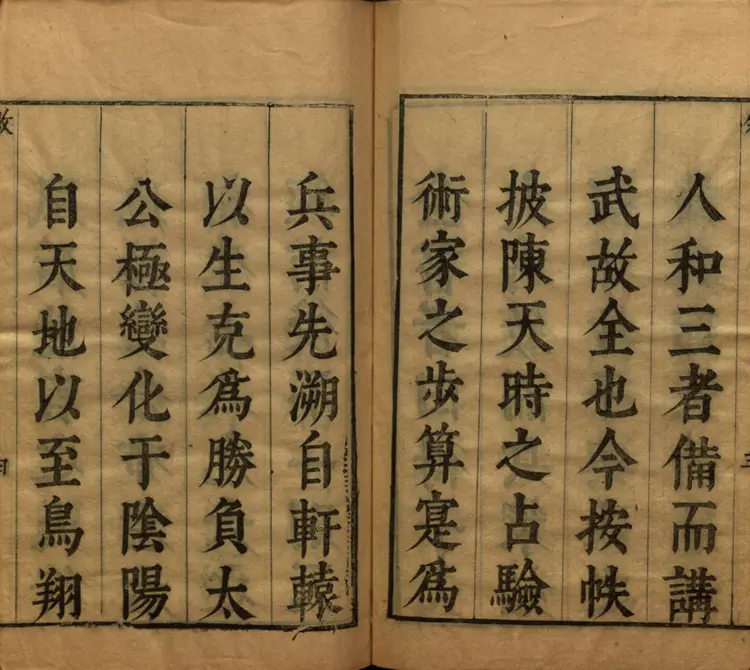 人和三者備而講
武故全也今按帙
披陳天時之占驗
術家之步算寔爲
兵事先溯自軒轅
以生克爲勝負太
公極變化于陰陽
自天地以至鳥翔